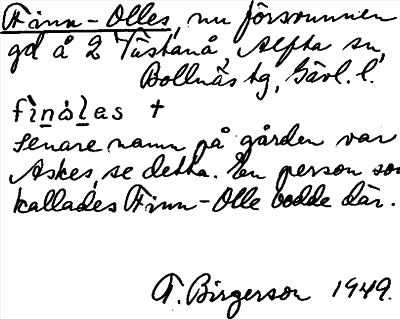 Finn-Olles, nu försvunnen
gd å 2 Tåstanå, Alfta sn,
Bollnäs tg, Gävl. l.
finòlas +
Senare namn på gården var
Askes, se detta. En person so
kallades Finn-Olle bodde där.
T. Birgerson 1949.